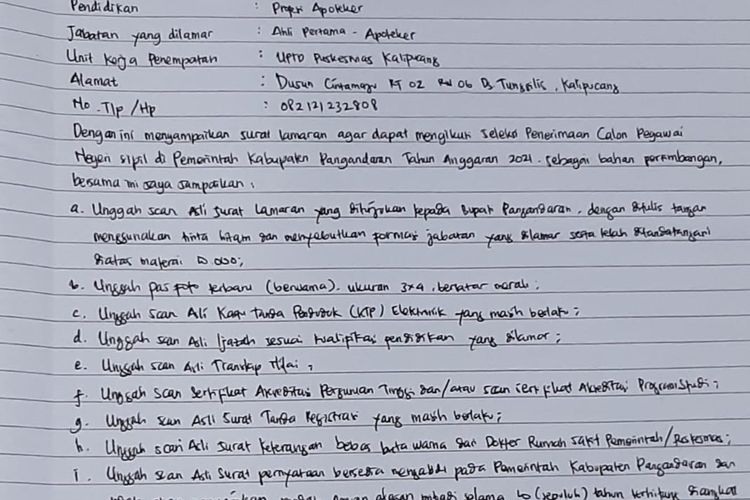 Pendidikan : Profesi Apoteker
Jabatan yang dilamar : Ahli Pertama - Apoteker
Unit Kerja Penempatan : UPTD Puskesmas Kalipucang
Alamat : Dusun Cintamaju RT 02 RW 06 Ds Tunggilis, Kalipucang
No. Tlp / Hp : 082121232808
Dengan ini menyampaikan surat lamaran agar dapat mengikuti seleksi Penerimaan Calon Pegawai
Negeri Sipil di Pemerintah Kabupaten Pangandaran Tahun Anggaran 2021. sebagai bahan pertimbangan,
bersama ini saya sampaikan :
a. Unggah scan Asli Surat Lamaran yang ditujukan kepada Bupati Pangandaran, dengan ditulis tangan
menggunakan tinta hitam dan menyebutkan formasi jabatan yang dilamar serta telah ditandatangani
diatas materai 10.000;
b. Unggah pas foto terbaru (berwarna). ukuran 3x4, berlatar merah;
c. Unggah scan Asli Kartu Tanda Penduduk (KTP) Elektronik yang masih berlaku;
d. Unggah scan Asli Ijazah sesuai kualifikasi pendidikan yang dilamar;
e. Unggah scan Asli Transkip Nilai;
f. Unggah scan Sertifikat Akreditasi Perguruan Tinggi dan/atau scan sertifikat Akreditasi Program Studi;
g. Unggah scan Asli Surat Tanda Registrasi yang masih berlaku;
h. Unggah scan Asli Surat keterangan bebas buta warna dari Dokter Rumah Sakit Pemerintah/Puskesmas;
i. Unggah scan Asli Surat pernyataan bersedia mengabdi pada Pemerintah Kabupaten Pangandaran dan
alasan pribadi selama 10 (sepuluh) tahun terhitung diangkat